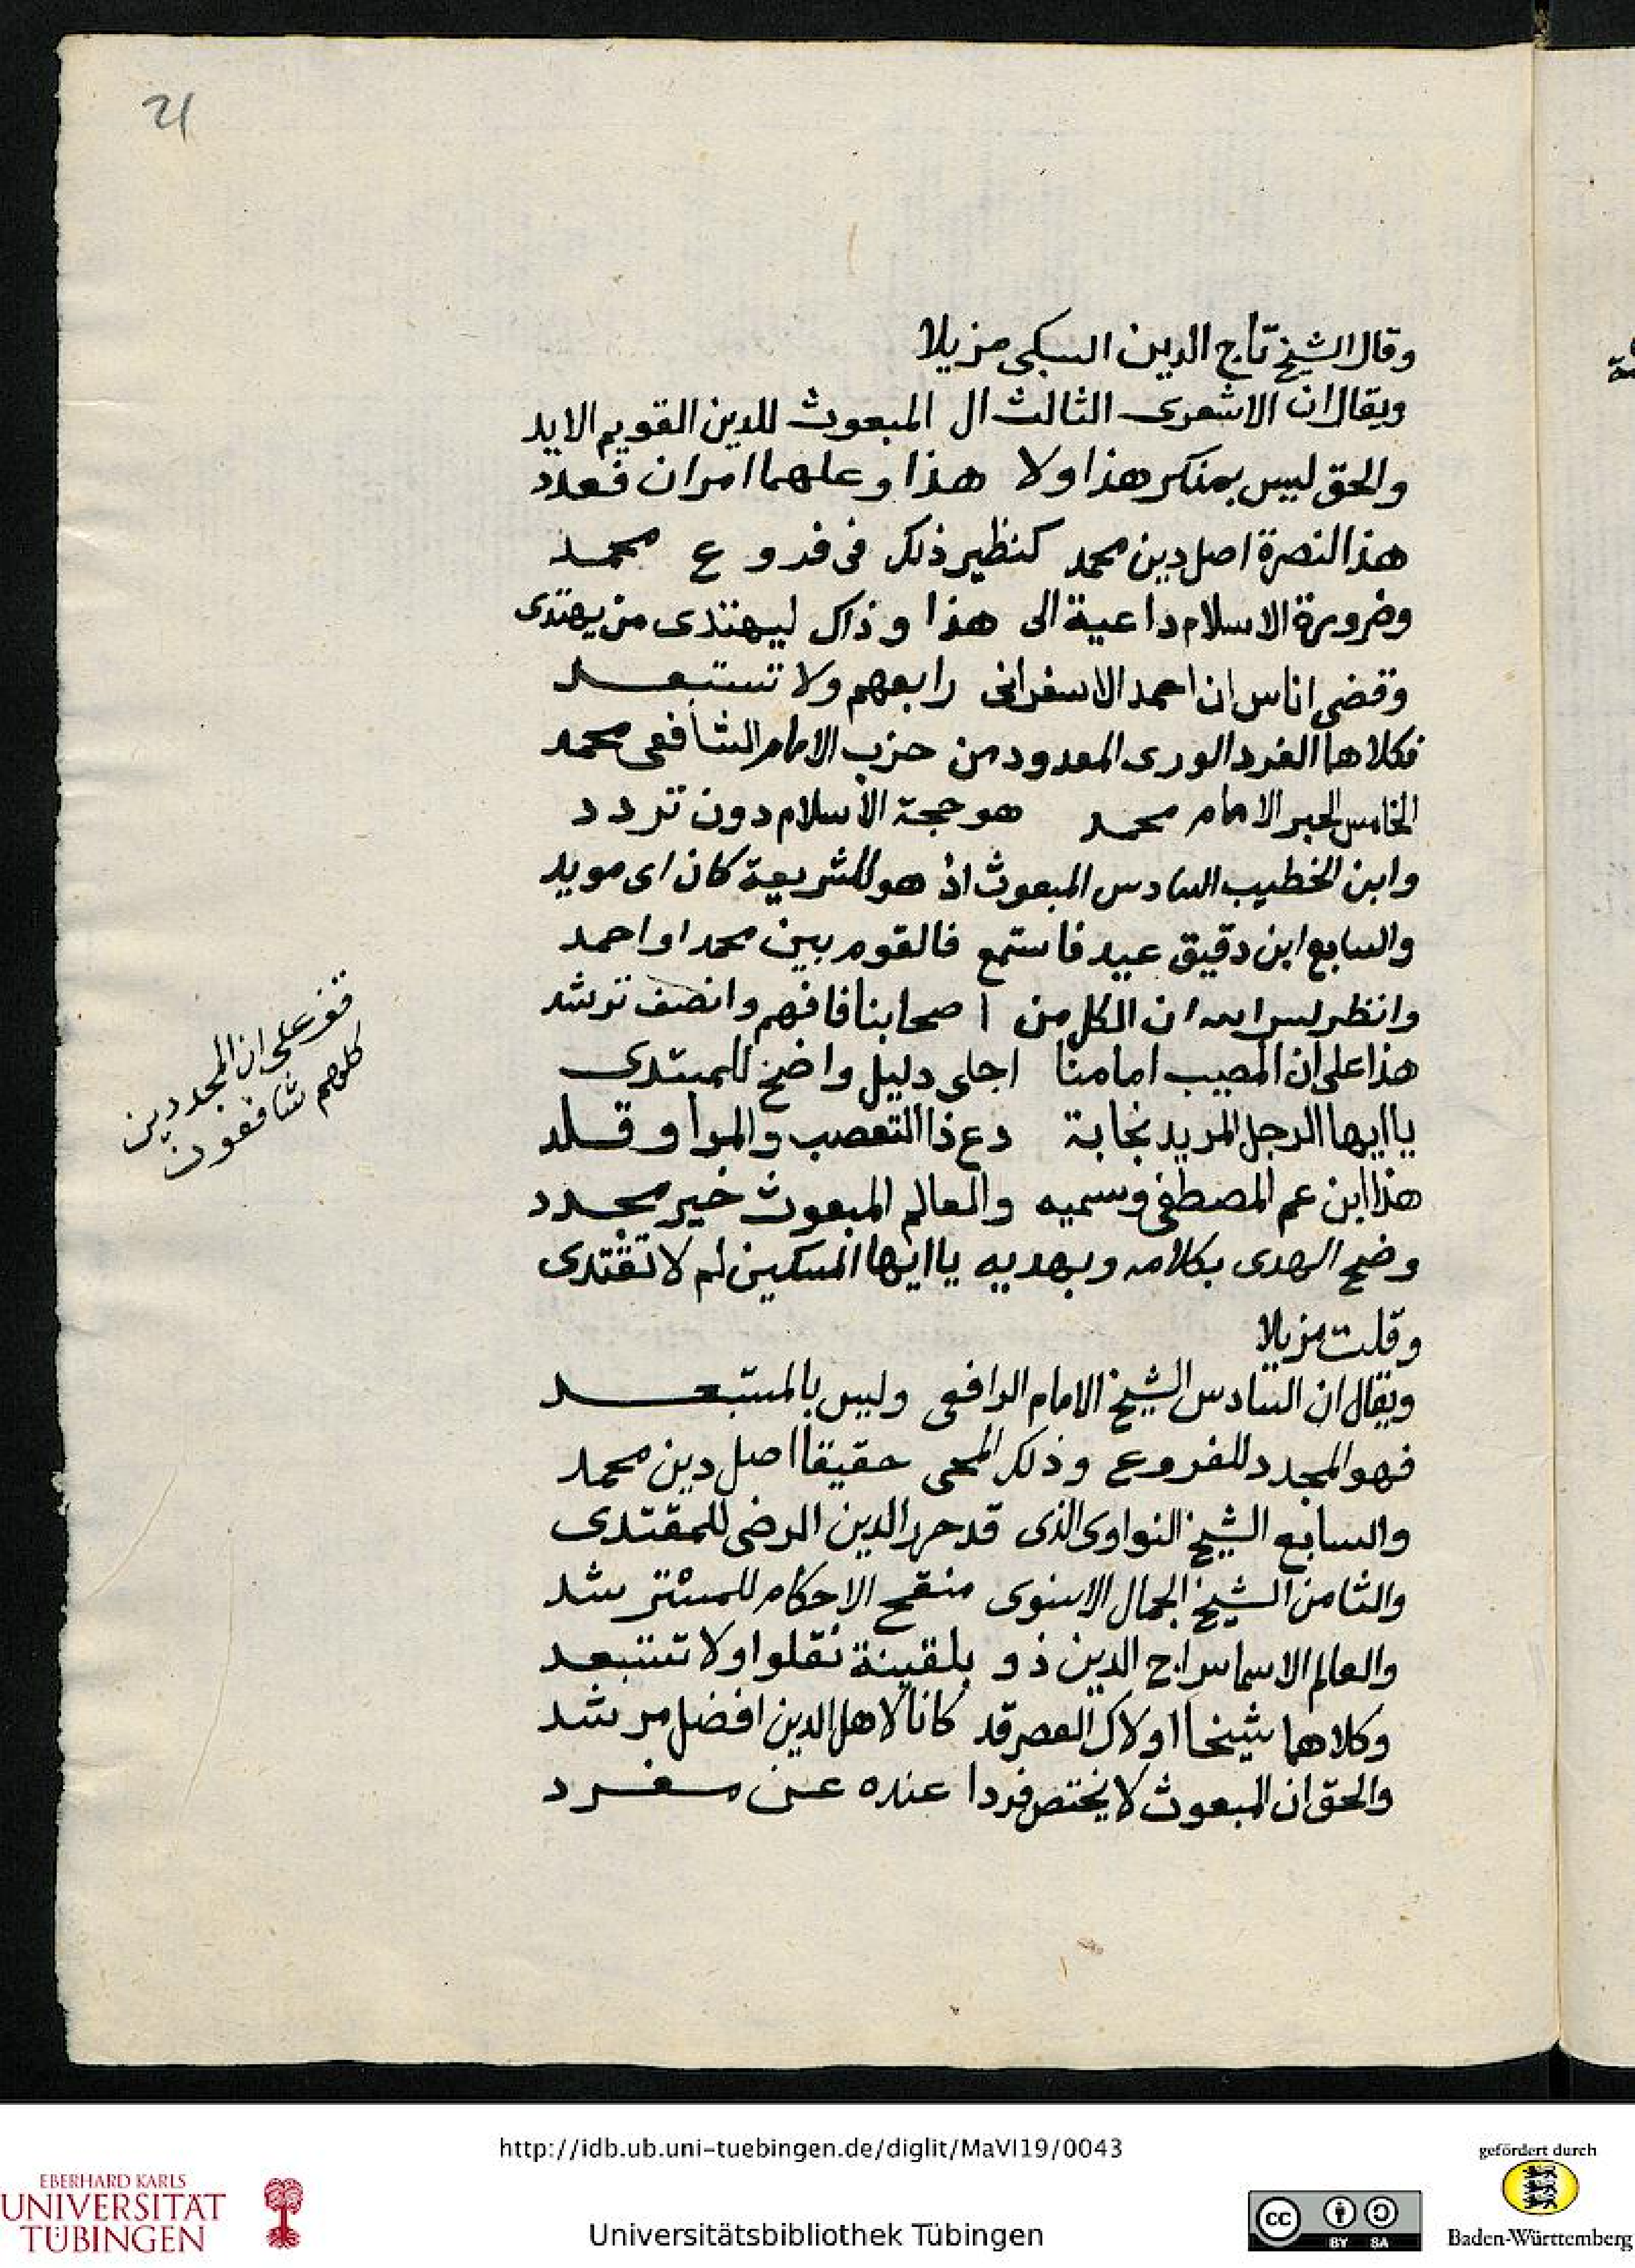 21
وقال الشيخ تاج الدين السبكى مزيلا
ويقال ان الاشعرى الثالث ال المبعوث للدين القويم الايد
والحق ليس بمنكر هذا ولا هذا وعلهما امران فعدد
هذا لنصرة اصل دين محمد كنظير ذلك فى فروع محمد
وضرورة الاسلام داعية الى هذا وذاك ليهتدى من يهتدى
وقضى اناس ان احمد الاسفرانى رابعهم ولا تستبعد
فكلاهما الفرد الورى المعدود من حزب الامام الشافعى محمد
الخامس الحبر الامام محمد هو حجة الاسلام دون تردد
وابن الخطيب السادس المبعوث اذ هو للشريعة كان اى مويد
والسابع ابن دقيق عيد فاستمع فالقوم بين محمد او احمد
وانظر لسر الله ان الكل من اصحابنا فافهم وانصف ترشد
هذا على ان المصيب امامنا اجلى دليل واضح للمبتدى
يا ايها الرجل المريد نجابة دع ذا التعصب والمرا وقلد
هذا ابن عم المصطفى وسميه والعالم المبعوث خير مجدد
وضح الهدى بكلامه وبهديه يا ايها المسكين لم لا تقتدى
وقلت مزيلا
ويقال ان السادس الشيخ الامام الرافعى وليس بالمستبعد
فهو المجدد للفروع وذلك المحى حقيقا اصل دين محمد
والسابع الشيخ النواوى الذى قد حرر الدين الرضى للمقتدى
والثامن الشيخ الجمال الاسنوى منقح الاحكام للمسترشد
والعالم الاسما سراج الدين ذو بلقينة نقلوا ولا تستبعد
وكلاهما شيخا اولاك العصر قد كانا لاهل الدين افضل مرشد
والحق ان المبعوث لا يختص فردا عنده عن مفرد
قف على ان المجددين
كلهم شافعون
http://idb.ub.uni-tuebingen.de/diglit/MaVI19/0043
EBERHARD KARLS
UNIVERSITÄT
TÜBINGEN
Universitätsbibliothek Tübingen
cc BY SA
gefördert durch
Baden-Württemberg